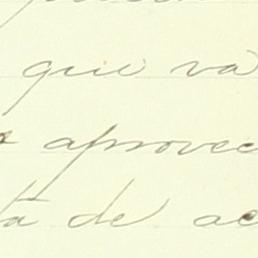 que va
aprovec
de ac